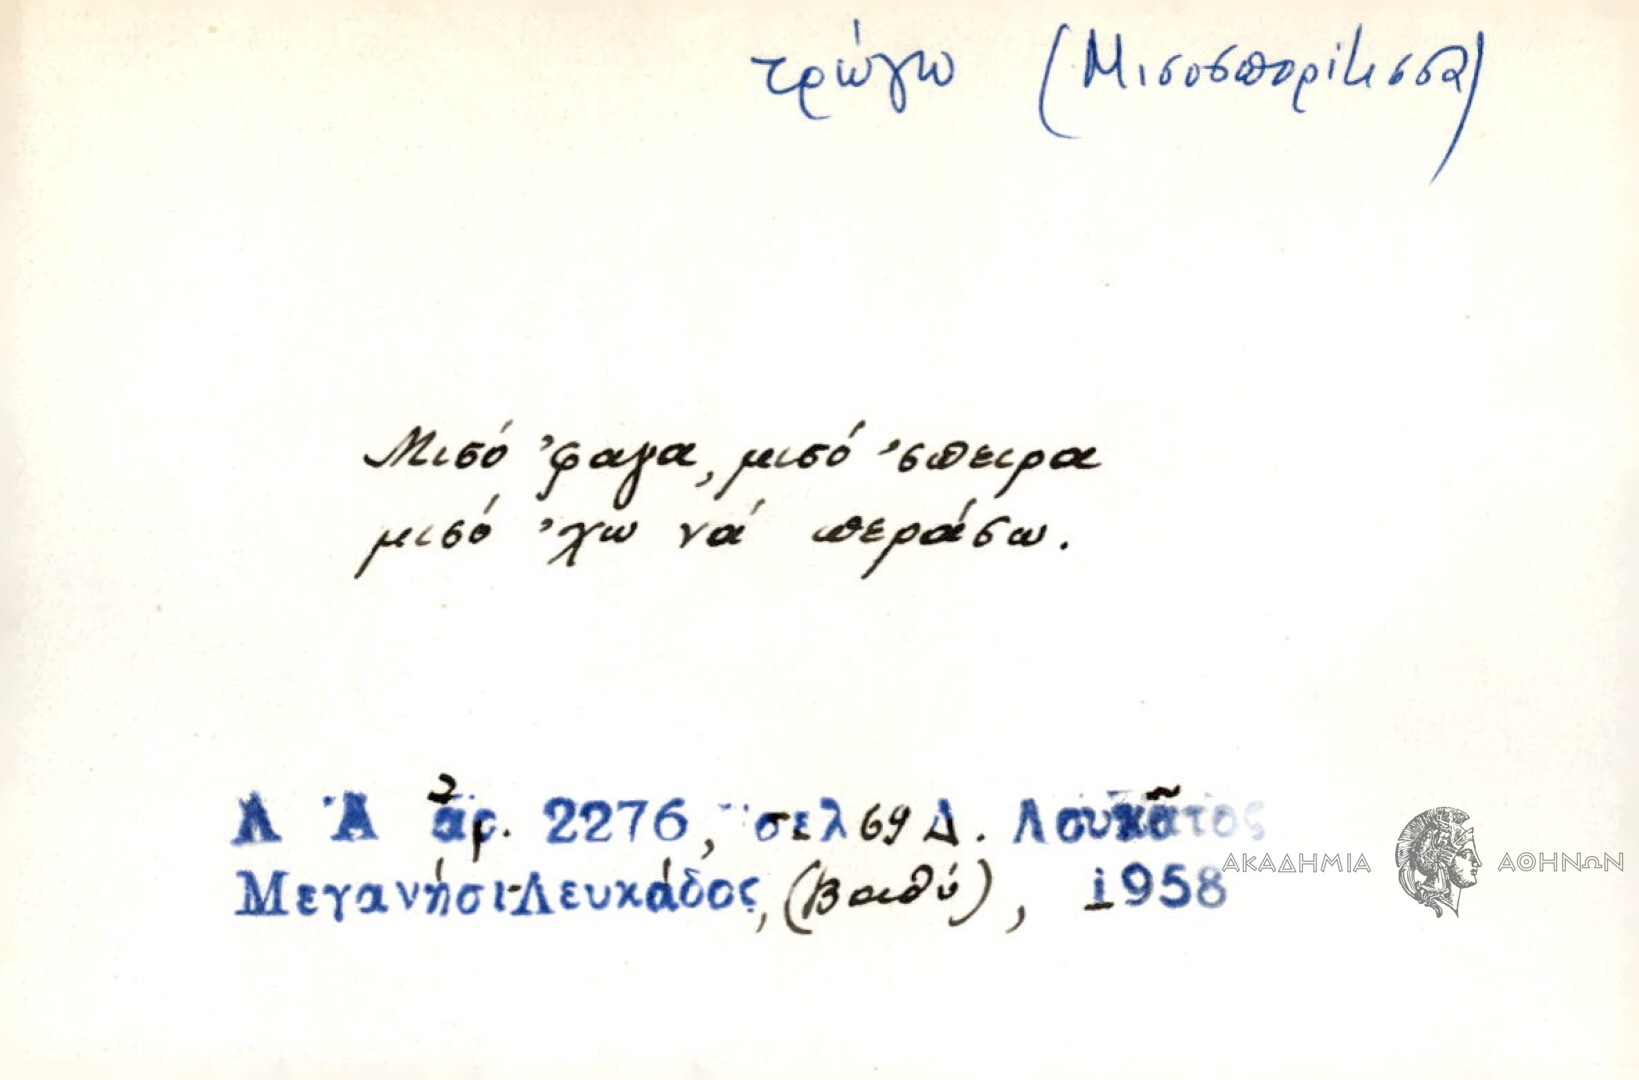 τρώγω (Μισοσπορίτισσα)
Μισό 'φαγα, μισό 'σπειρα
μισό 'χω νά περάσω.
Λ Ἀ ἀρ. 2276, σελ 69 Δ. Λουκᾶτος
Μεγανήσι-Λευκάδος, (Βαθύ), 1958
ΑΚΑΔΗΜΙΑ ΑΘΗΝΩΝ